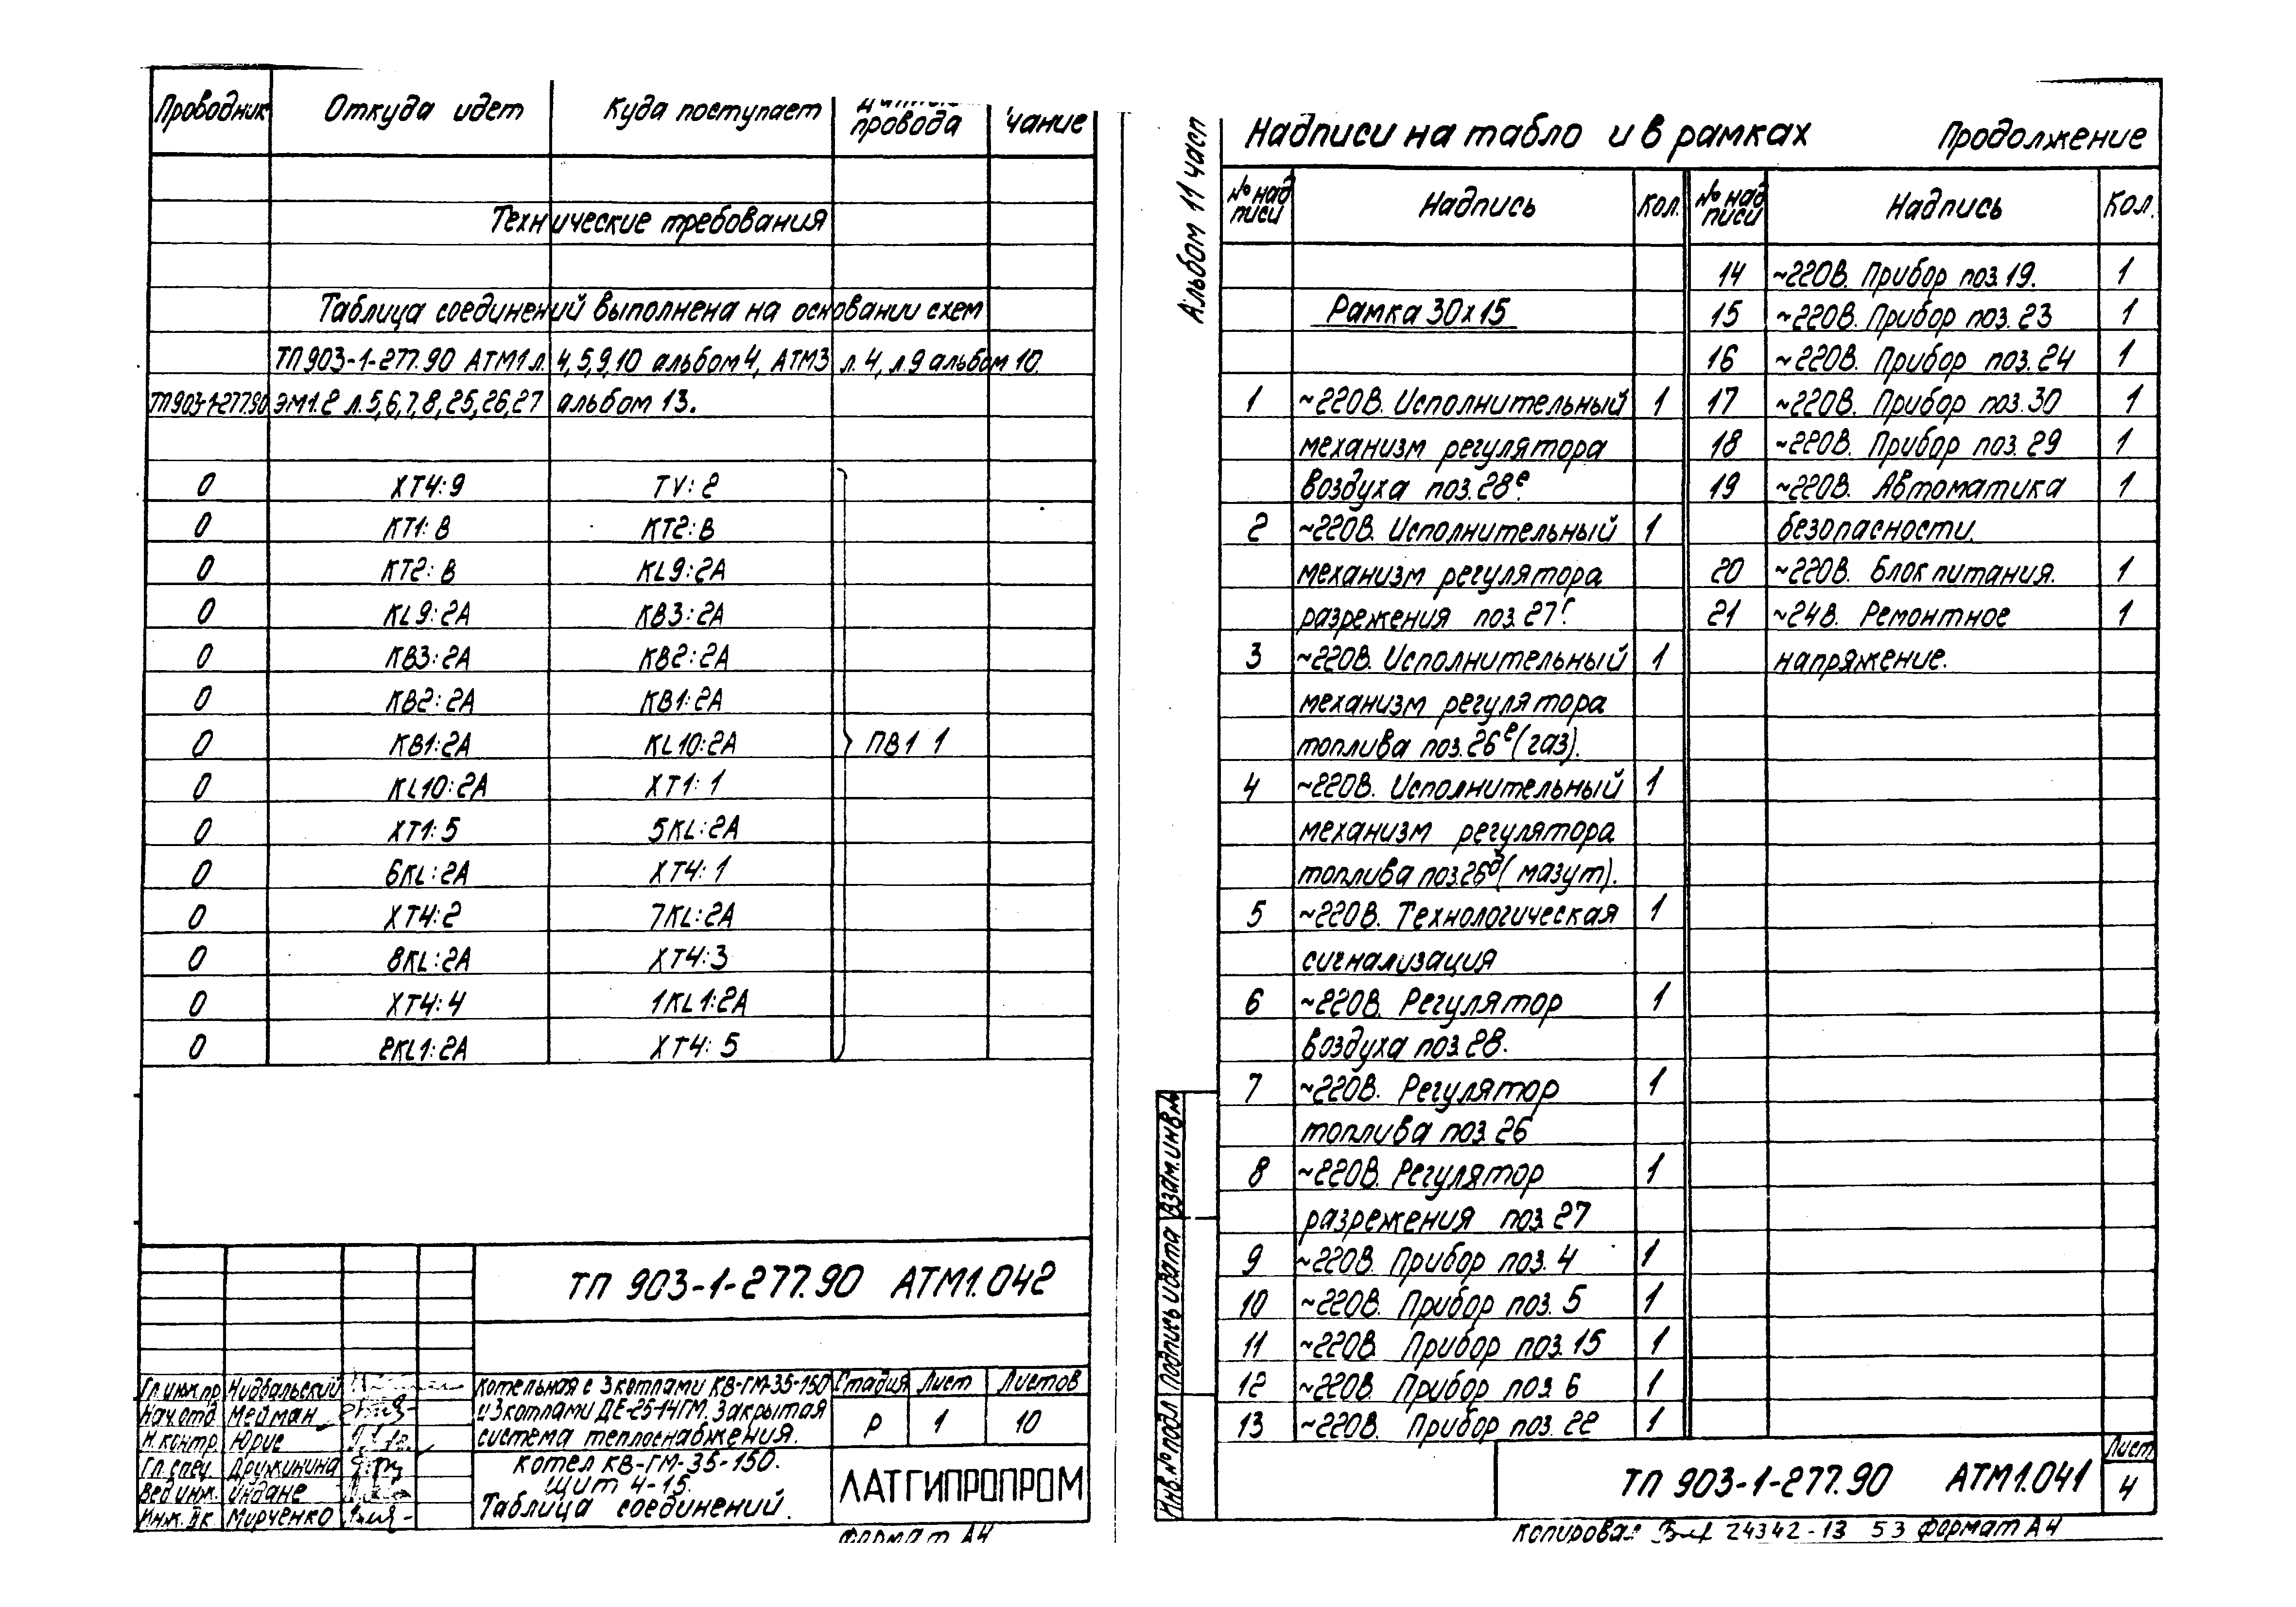 Проводник Откуда идет Куда поступает провода чание
Технические требования
Таблица соединений выполнена на основании схем
ТП 903-1-277.90 АТМ1 л. 4,5,9,10 альбом 4, АТМ3 л. 4, л. 9 альбом 10.
ТП903-1-277.90 ЭМ1.2 л. 5,6,7,8,25,26,27 альбом 13.
0 ХТ4:9 TV:2
0 КТ1:В КТ2:В
0 КТ2:В KL9:2А
0 KL9:2А КВ3:2А
0 КВ3:2А КВ2:2А
0 КВ2:2А КВ1:2А
0 КВ1:2А KL10:2А ПВ1 1
0 KL10:2А ХТ1:1
0 ХТ1:5 5KL:2А
0 6KL:2А ХТ4:1
0 ХТ4:2 7KL:2А
0 8KL:2А ХТ4:3
0 ХТ4:4 1KL1:2А
0 2KL1:2А ХТ4:5
ТП 903-1-277.90 АТМ1.042
Гл.инж.пр. Нидбальский
Нач.отд. Мейман
Н.контр. Юрис
Гл.спец. Дружинина
Вед.инж. Индане
Инж. IIк. Мирченко
Котельная с 3 котлами КВ-ГМ-35-150
и 3 котлами ДЕ-25-14ГМ. Закрытая
система теплоснабжения.
Стадия Лист Листов
Р 1 10
Котел КВ-ГМ-35-150.
Щит 4-15.
Таблица соединений.
ЛАТГИПРОПРОМ
Формат А4
Альбом 11 част
Надписи на табло и в рамках Продолжение
№ над писи Надпись Кол. № над писи Надпись Кол.
Рамка 30х15
1 ~220В. Исполнительный 1
механизм регулятора
воздуха поз. 28е.
2 ~220В. Исполнительный 1
механизм регулятора
разрежения поз. 27г.
3 ~220В. Исполнительный 1
механизм регулятора
топлива поз. 26е (газ).
4 ~220В. Исполнительный 1
механизм регулятора
топлива поз. 26д (мазут).
5 ~220В. Технологическая 1
сигнализация
6 ~220В. Регулятор 1
воздуха поз. 28.
7 ~220В. Регулятор 1
топлива поз. 26
8 ~220В. Регулятор 1
разрежения поз. 27
9 ~220В. Прибор поз. 4 1
10 ~220В. Прибор поз. 5 1
11 ~220В. Прибор поз. 15 1
12 ~220В. Прибор поз. 6 1
13 ~220В. Прибор поз. 22 1
14 ~220В. Прибор поз. 19. 1
15 ~220В. Прибор поз. 23 1
16 ~220В. Прибор поз. 24 1
17 ~220В. Прибор поз. 30 1
18 ~220В. Прибор поз. 29 1
19 ~220В. Автоматика 1
безопасности.
20 ~220В. Блок питания. 1
21 ~24В. Ремонтное 1
напряжение.
Взам.инв.№
Подпись и дата
Инв.№ подл
ТП 903-1-277.90 АТМ1.041
Лист
4
Копировал 24342-13 53 Формат А4